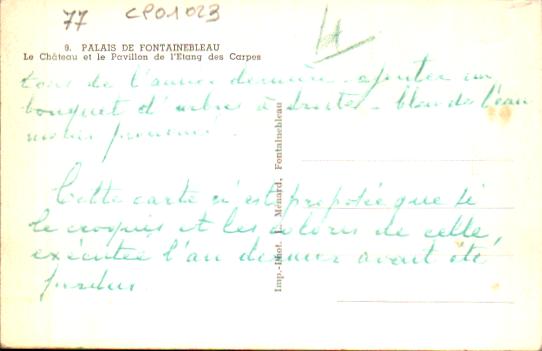 77 CP01023
1A
9. PALAIS DE FONTAINEBLEAU
Le Château et le Pavillon de l'Etang des Carpes
tons de l'année dernière - ajouter un
bouquet d'arbres à droite - bleu de l'eau
moins prononcé.
Cette carte n'est proposée que si
le croquis et les coloris de celle,
exécutée l'an dernier avait été
perdus.
Imp.-Phot. L. Ménard, Fontainebleau